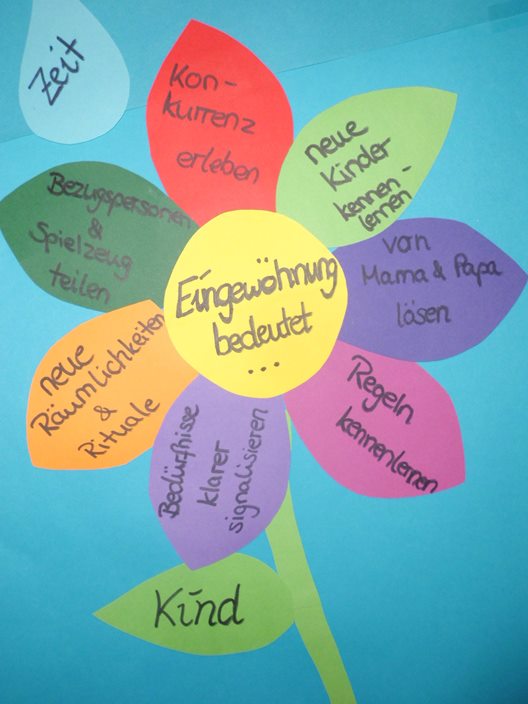 Zeit
Kon-
kurrenz
erleben
neue
Kinder
kennen-
lernen
von
Mama & Papa
lösen
Regeln
kennenlernen
Bedürfnisse
klarer
signalisieren
neue
Räumlichkeiten
&
Rituale
Bezugspersonen
&
Spielzeug
teilen
Eingewöhnung
bedeutet
...
Kind